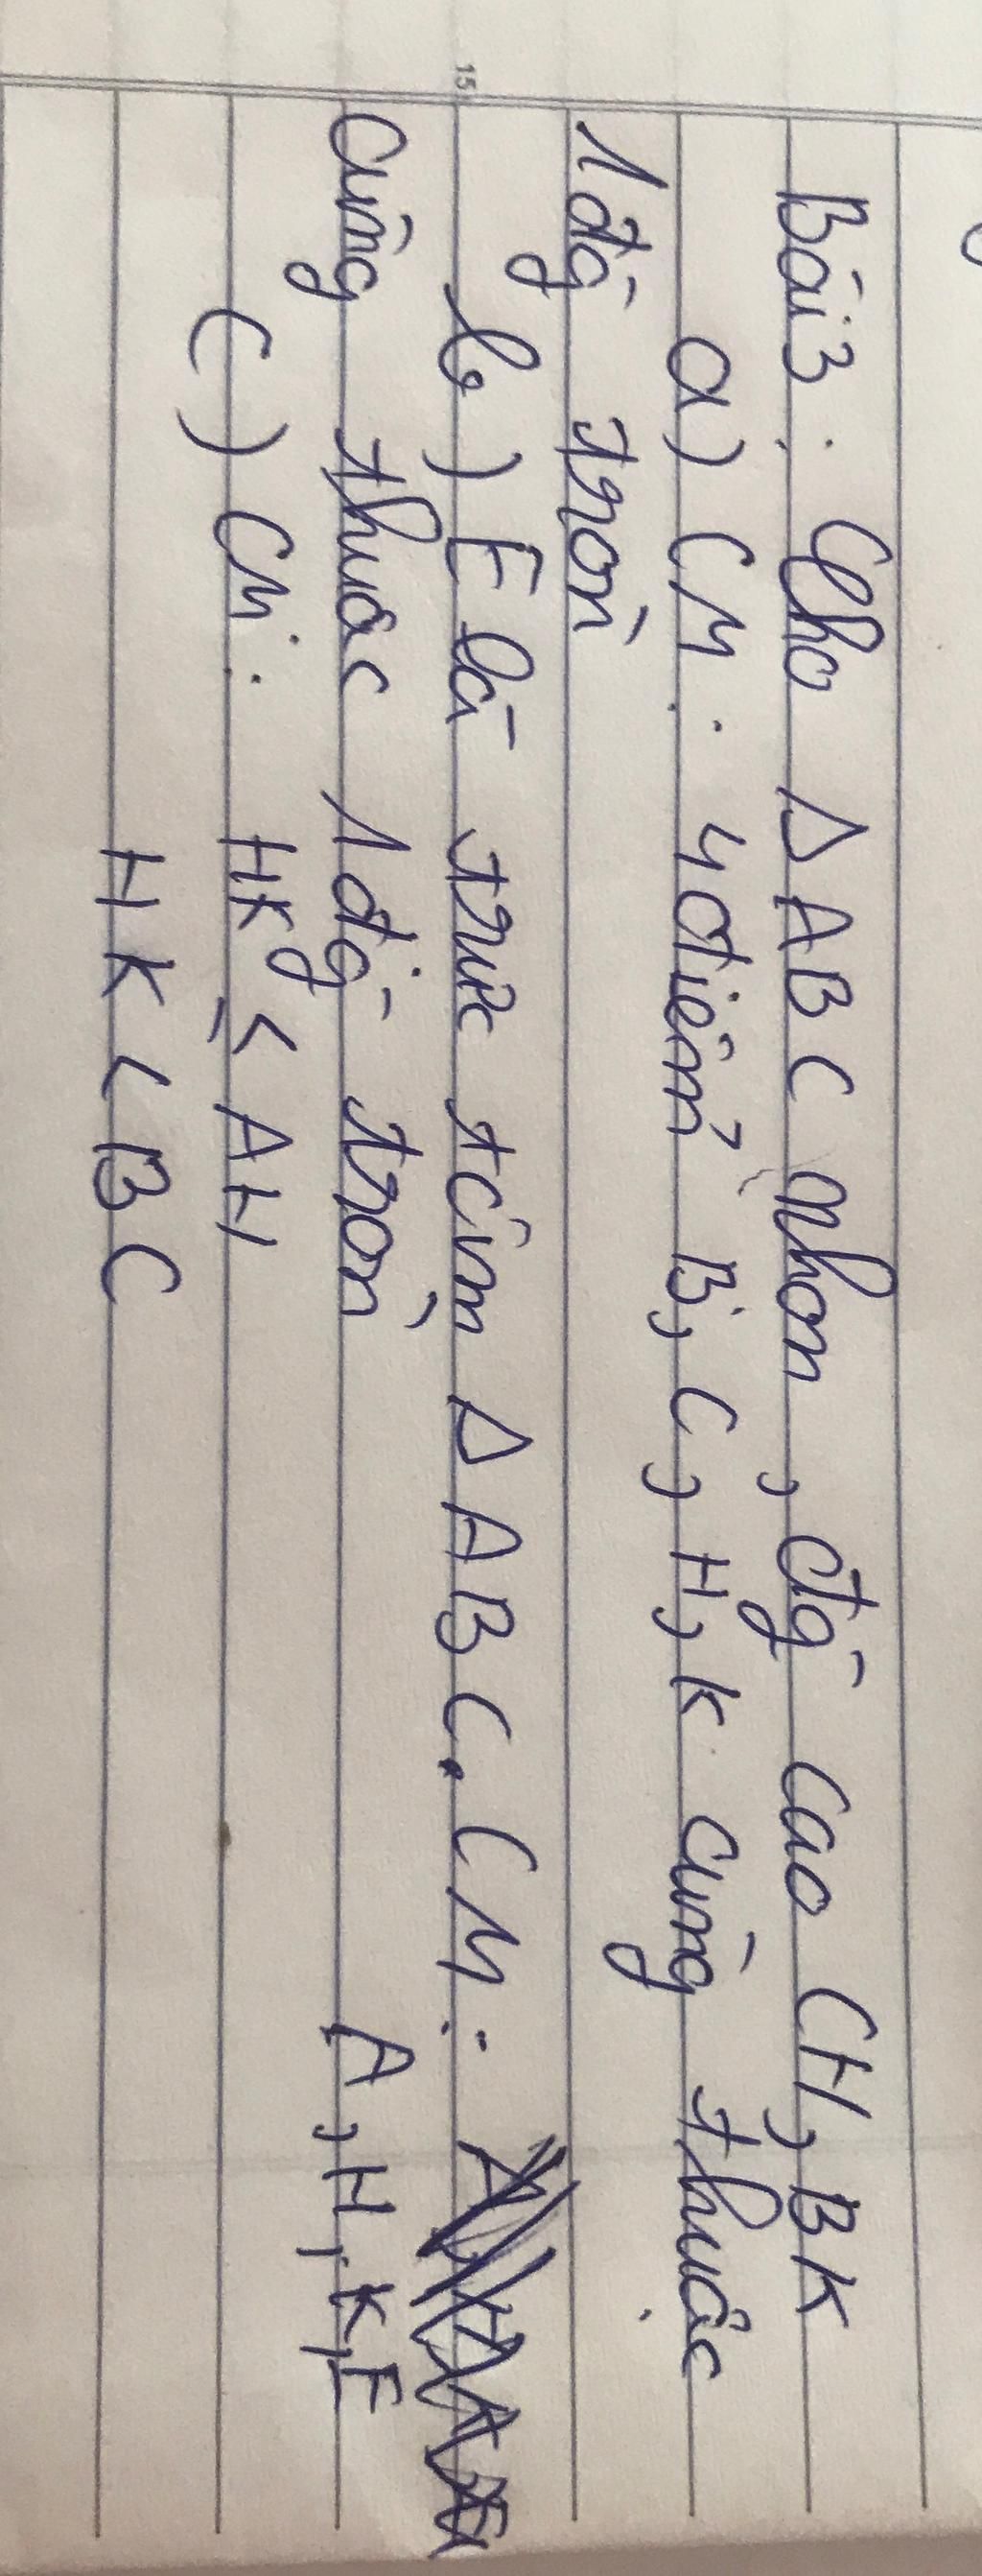 Bài 3: Cho Δ ABC nhọn, đg cao CH, BK
a) CM: 4 điểm B, C, H, K cùng thuộc
1 đg tròn
b) E là trực tâm Δ ABC. CM:
cùng thuộc 1 đg tròn A, H, K, E
c) CM: HK ≤ AH
HK < BC
15